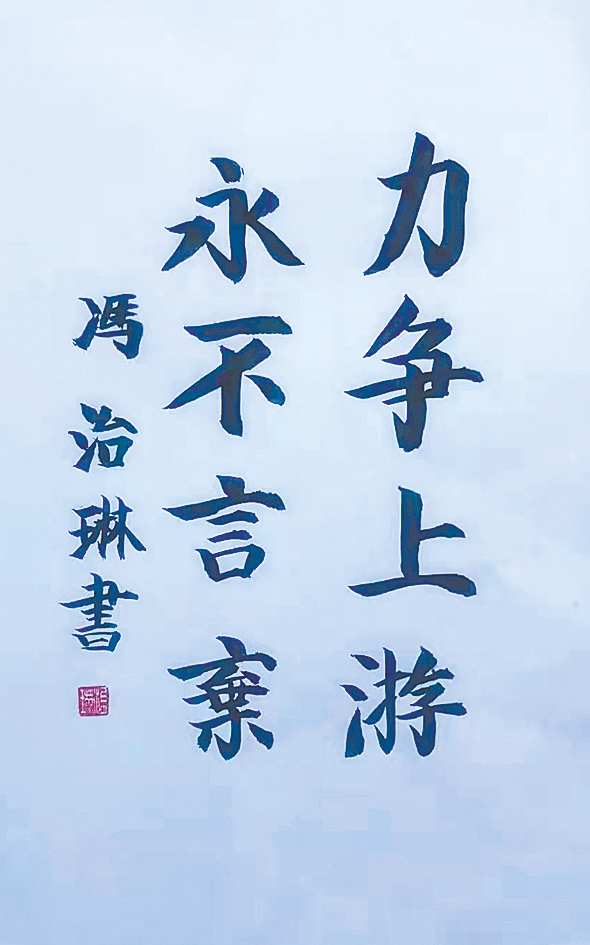 力争上游
永不言棄
馮治琳書